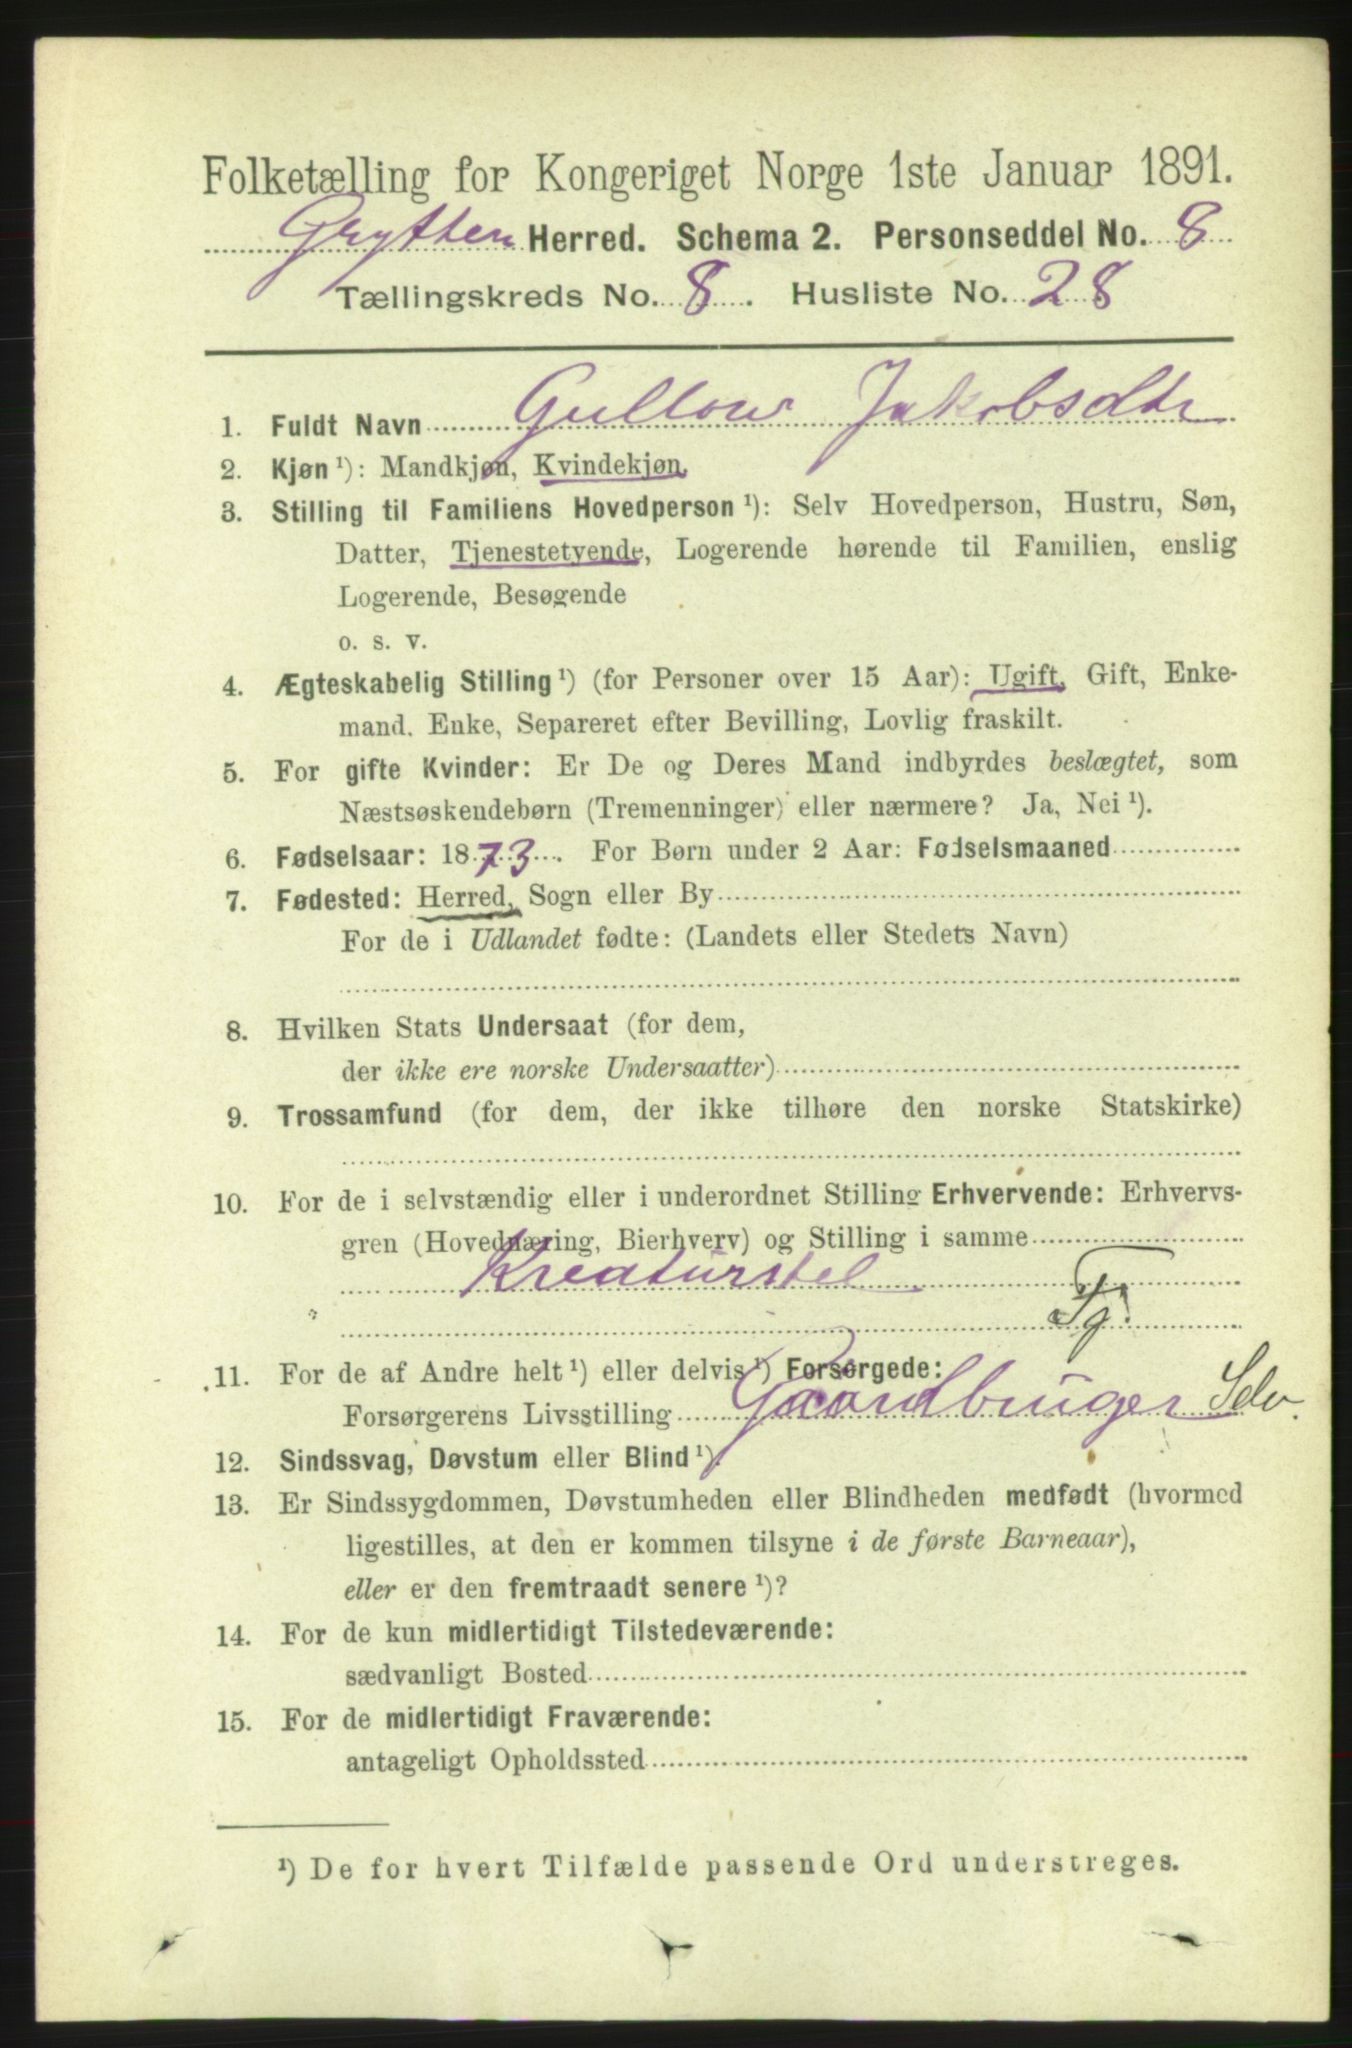 Folketælling for Kongeriget Norge 1ste Januar 1891.
Grytten Herred. Schema 2. Personseddel No. 8
Tællingskreds No. 8. Husliste No. 28
1. Fuldt Navn Gullow Jakobsdtr
2. Kjøn ¹): Mandkjøn, Kvindekjøn
3. Stilling til Familiens Hovedperson ¹): Selv Hovedperson, Hustru, Søn,
Datter, Tjenestetyende, Logerende hørende til Familien, enslig
Logerende, Besøgende
o. s. v.
4. Ægteskabelig Stilling ¹) (for Personer over 15 Aar): Ugift, Gift, Enke-
mand, Enke, Separeret efter Bevilling, Lovlig fraskilt.
5. For gifte Kvinder: Er De og Deres Mand indbyrdes beslægtet, som
Næstsøskendebørn (Tremenninger) eller nærmere? Ja, Nei ¹).
6. Fødselsaar: 1873. For Børn under 2 Aar: Fødselsmaaned
7. Fødested: Herred, Sogn eller By
For de i Udlandet fødte: (Landets eller Stedets Navn)
8. Hvilken Stats Undersaat (for dem,
der ikke ere norske Undersaatter)
9. Trossamfund (for dem, der ikke tilhøre den norske Statskirke)
10. For de i selvstændig eller i underordnet Stilling Erhvervende: Erhvervs-
gren (Hovednæring, Bierhverv) og Stilling i samme
Kreaturstel
Tj.
11. For de af Andre helt ¹) eller delvis ¹) Forsørgede:
Forsørgerens Livsstilling Gaardbruger Selv.
12. Sindssvag, Døvstum eller Blind ¹).
13. Er Sindssygdommen, Døvstumheden eller Blindheden medfødt (hvormed
ligestilles, at den er kommen tilsyne i de første Barneaar),
eller er den fremtraadt senere ¹)?
14. For de kun midlertidigt Tilstedeværende:
sædvanligt Bosted
15. For de midlertidigt Fraværende:
antageligt Opholdssted
¹) De for hvert Tilfælde passende Ord understreges.